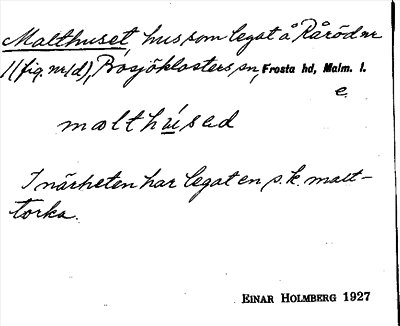 Malthuset, hus som legat å Råröd nr
1 (fig. nr 1d), Bosjöklosters sn, Frosta hd, Malm. l.
e.
malthúsad
I närheten har legat en s.k. malt-
torka.
EINAR HOLMBERG 1927